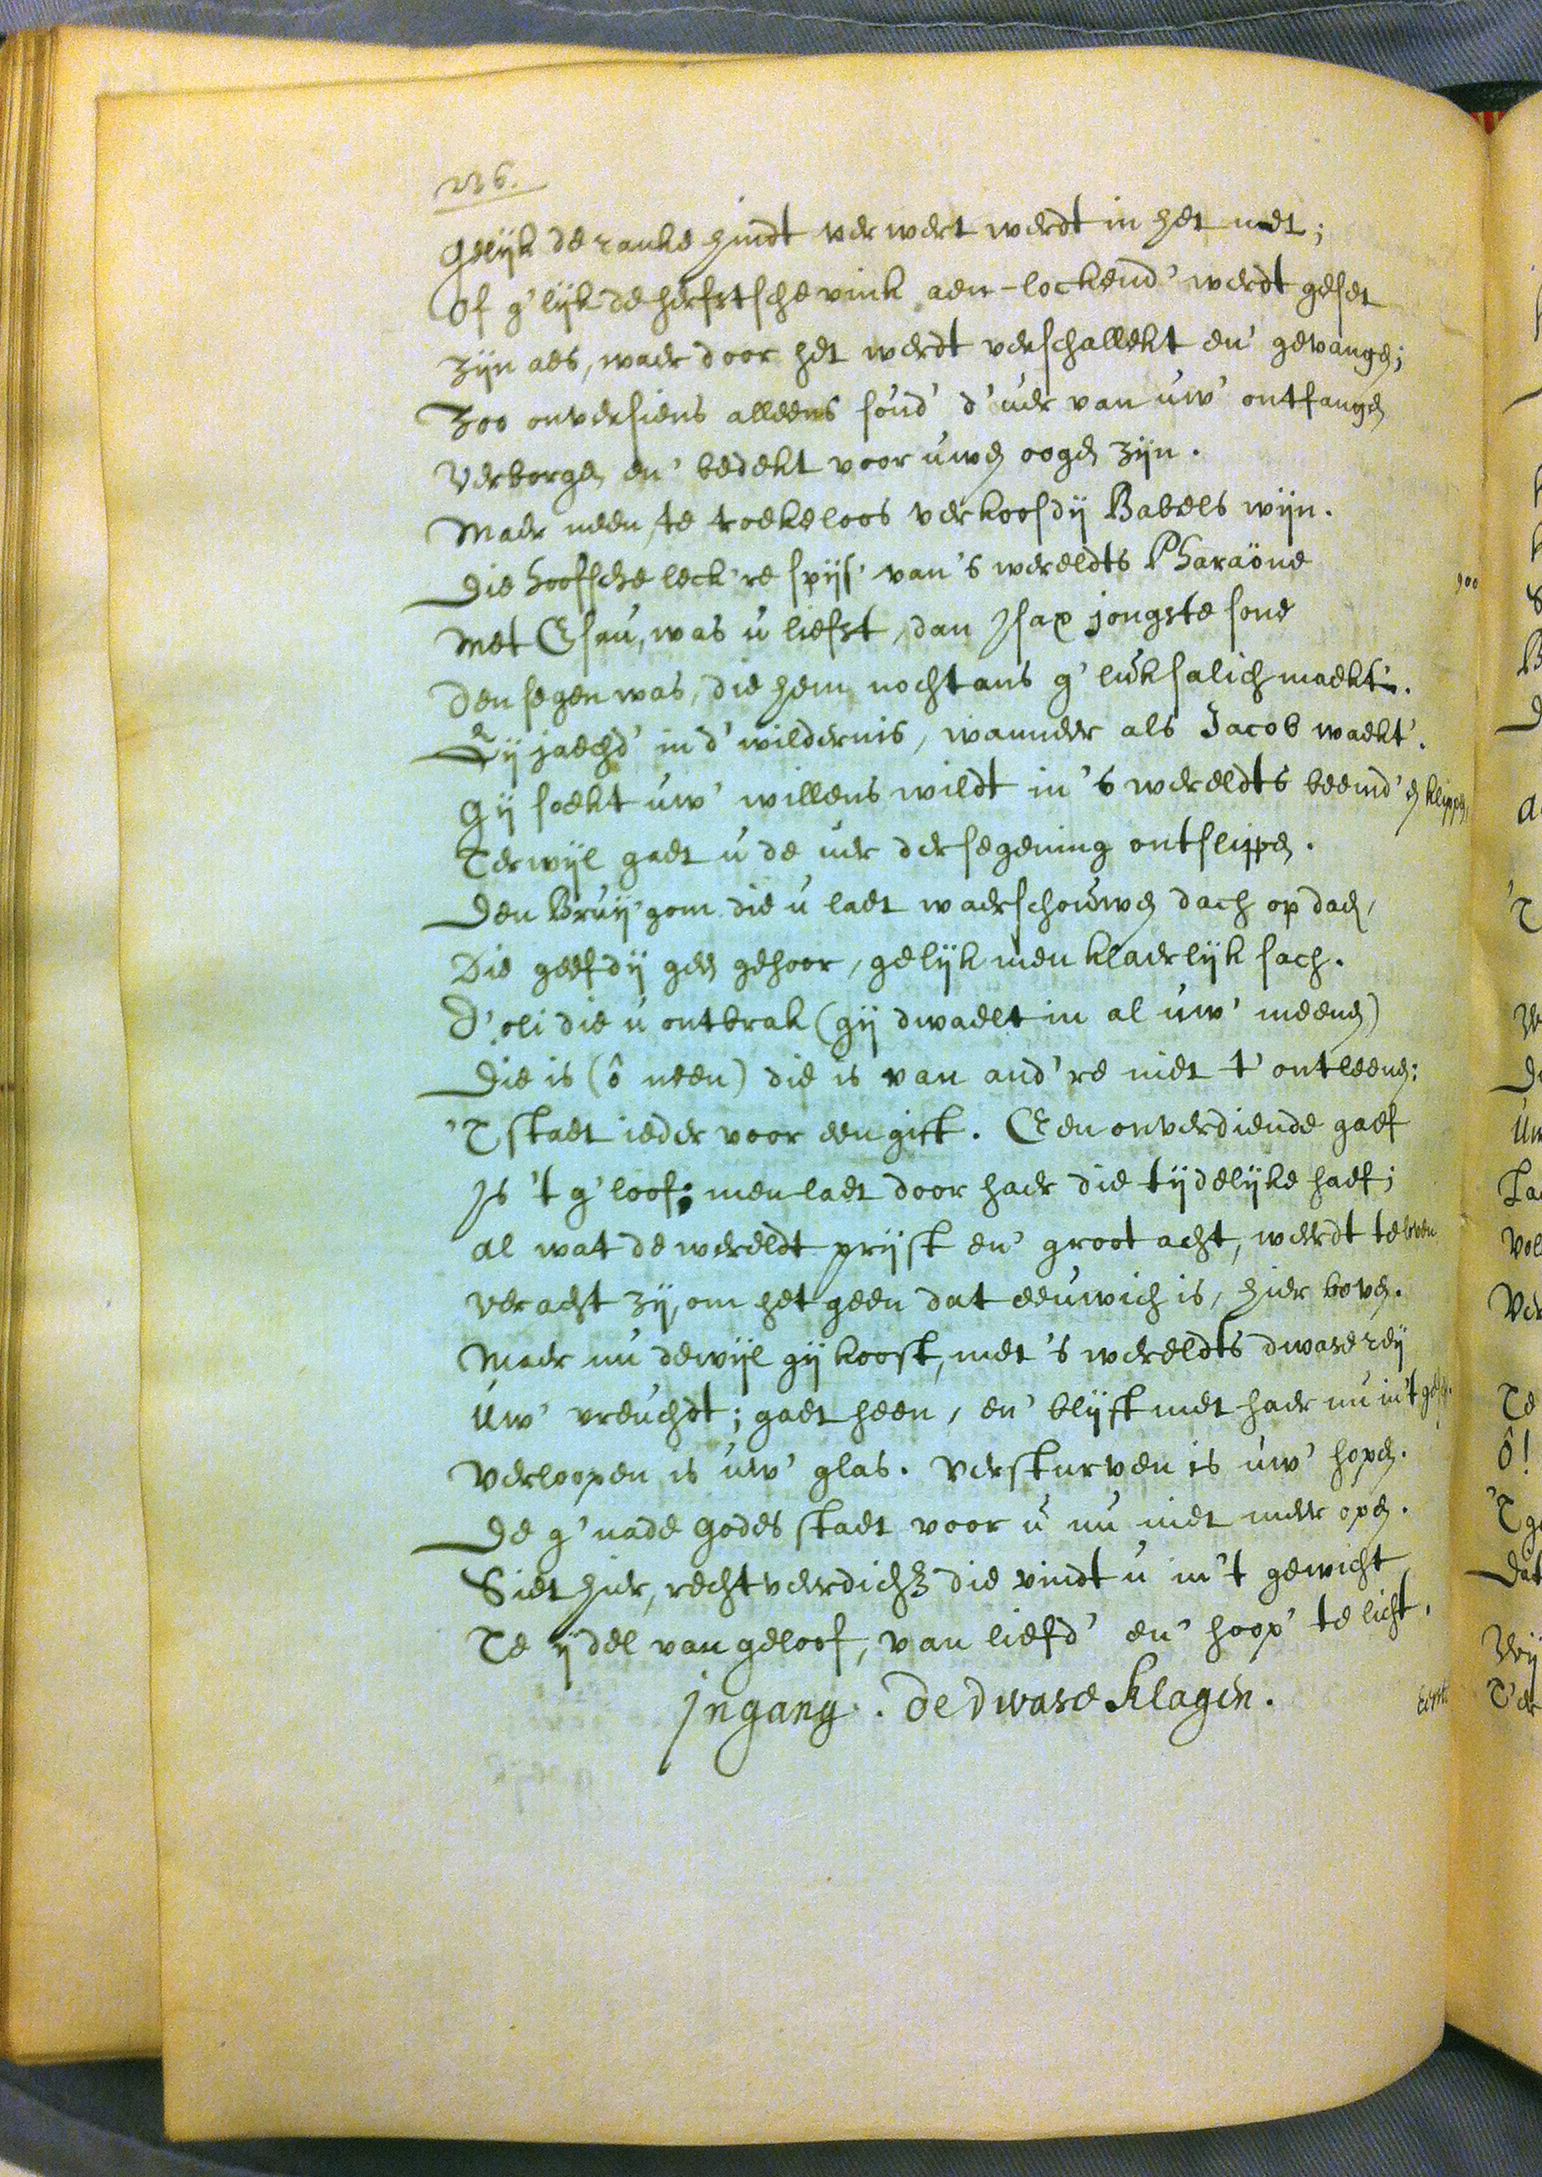 236.
Gelijk de ranke hindt verwert werdt in het net;
Of g'lijk de herfstsche vink aen-lockend' werdt geset
Zijn aes, waer door het werdt verschallekt en' gevangen;
Zoo onversiens alleens soud' d'uer van uw' ontfangen
Verborgen en' bedekt voor uwen oogen zijn.
Maer neen, te roekeloos verkoosdij Babels wijn.
Die hoofsche leck're spijs' van 's wereldts Pharaöne
Met Esau, was u liefst, dan Isax jongste sone
Den segen was, die hem nochtans g'luksalich maekt'.
Gij jaechd' in d'wildernis, wanneer als Jacob waekt'.
Gij soekt uw' willens wildt in 's wereldts beemd' en klippen,
Terwijl gaet u de uer der segening ontslippen.
Den Bruij'gom die u laet waerschouwen dach op dach,
Die geefdij geen gehoor, gelijk men klaerlijk sach.
D'oli die u ontbrak (gij dwaelt in al uw' meenen)
Die is (ô neen) die is van and're niet t'ontleenen:
'T staet ieder voor een gift. Een onverdiende gaef
Is 't g'loof; men laet door haer die tijdelijke haef;
Al wat de wereldt prijst en' groot acht, werdt te loven
Veracht zij, om het geen dat eeuwich is, hier boven.
Maer nu dewijl gij koost, met 's wereldts dwase rej
Uw' vreuchdt; gaet heen, en' blijft met haer nu in't
Verloopen is uw' glas. Versturven is uw' hopen.
De g'nade Godes staet voor u nu niet meer open.
Siet hier, rechtveerdich3 die vindt u in't gewicht
Te ijdel van geloof, van liefd' en' hoop' te licht.
Jngang. De Dwase Klagen.